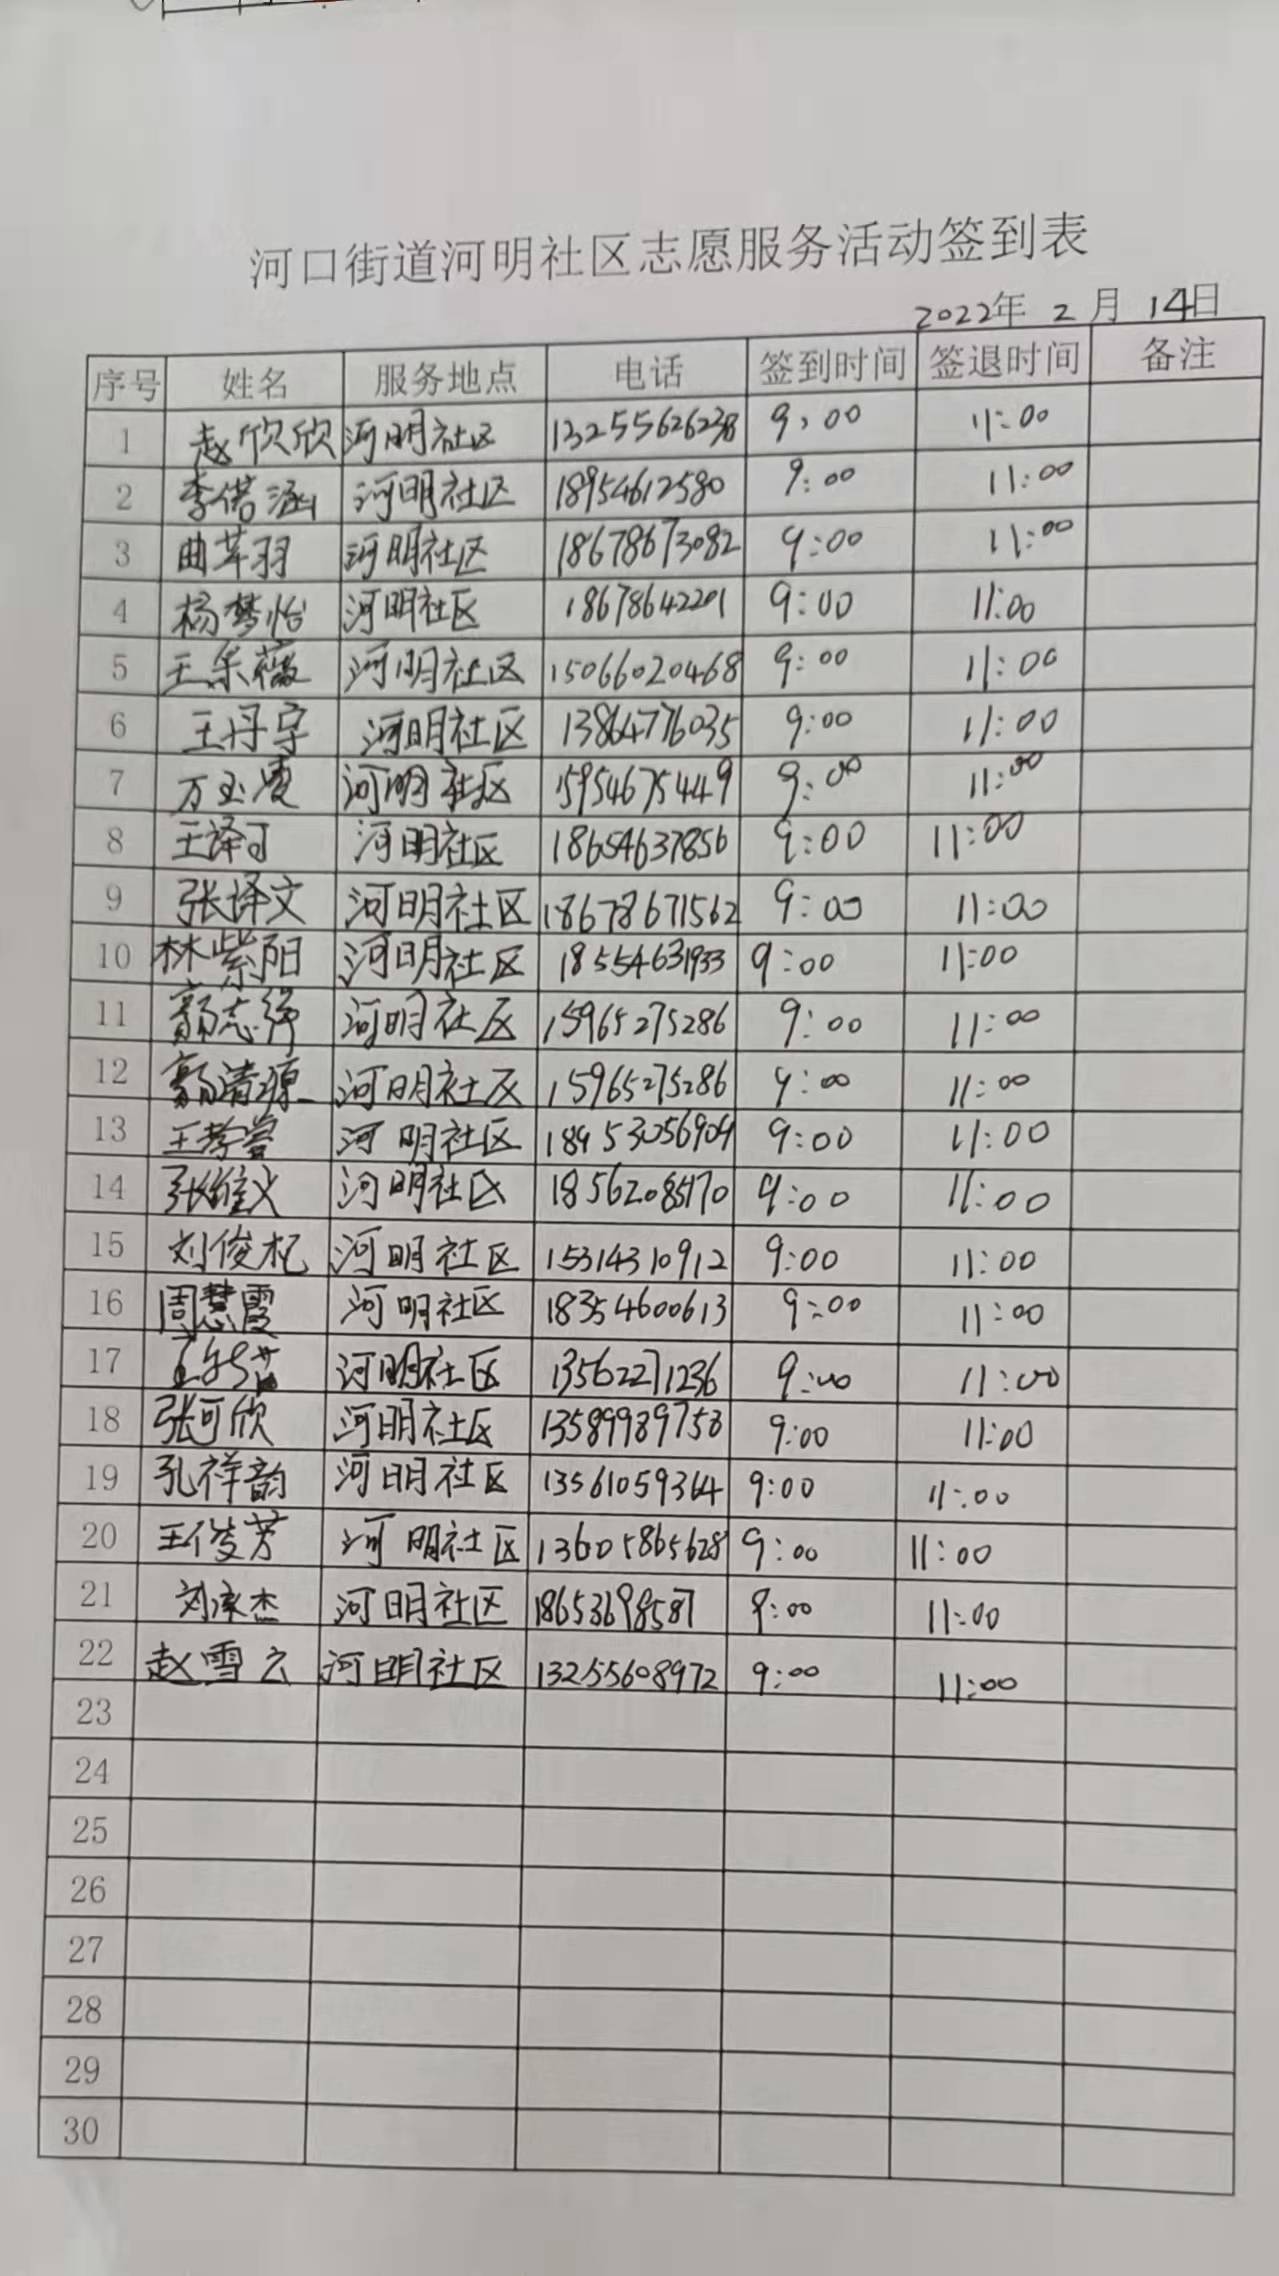 河口街道河明社区志愿服务活动签到表
2022年 2 月 14日
序号 姓名 服务地点 电话 签到时间 签退时间 备注
1 赵欣欣 河明社区 13255626238 9:00 11:00
2 李偌涵 河明社区 18954612580 9:00 11:00
3 曲苹羽 河明社区 18678673082 9:00 11:00
4 杨梦怡 河明社区 18678642201 9:00 11:00
5 王乐薇 河明社区 15066020468 9:00 11:00
6 王丹宇 河明社区 13864776035 9:00 11:00
7 万玉 河明社区 15954675449 9:00 11:00
8 王译可 河明社区 18654637856 9:00 11:00
9 张译文 河明社区 18678671562 9:00 11:00
10 林紫阳 河明社区 18554631933 9:00 11:00
11 河明社区 15965275286 9:00 11:00
12 河明社区 15965275286 9:00 11:00
13 河明社区 18953056909 9:00 11:00
14 张维义 河明社区 18562085170 9:00 11:00
15 刘俊杞 河明社区 15314310912 9:00 11:00
16 周慧霞 河明社区 18354600613 9:00 11:00
17 河明社区 13562271236 9:00 11:00
18 张可欣 河明社区 13589989753 9:00 11:00
19 孔祥韵 河明社区 13561059364 9:00 11:00
20 王俊芳 河明社区 13605865628 9:00 11:00
21 河明社区 18653698587 9:00 11:00
22 赵雪云 河明社区 13255608972 9:00 11:00
23
24
25
26
27
28
29
30